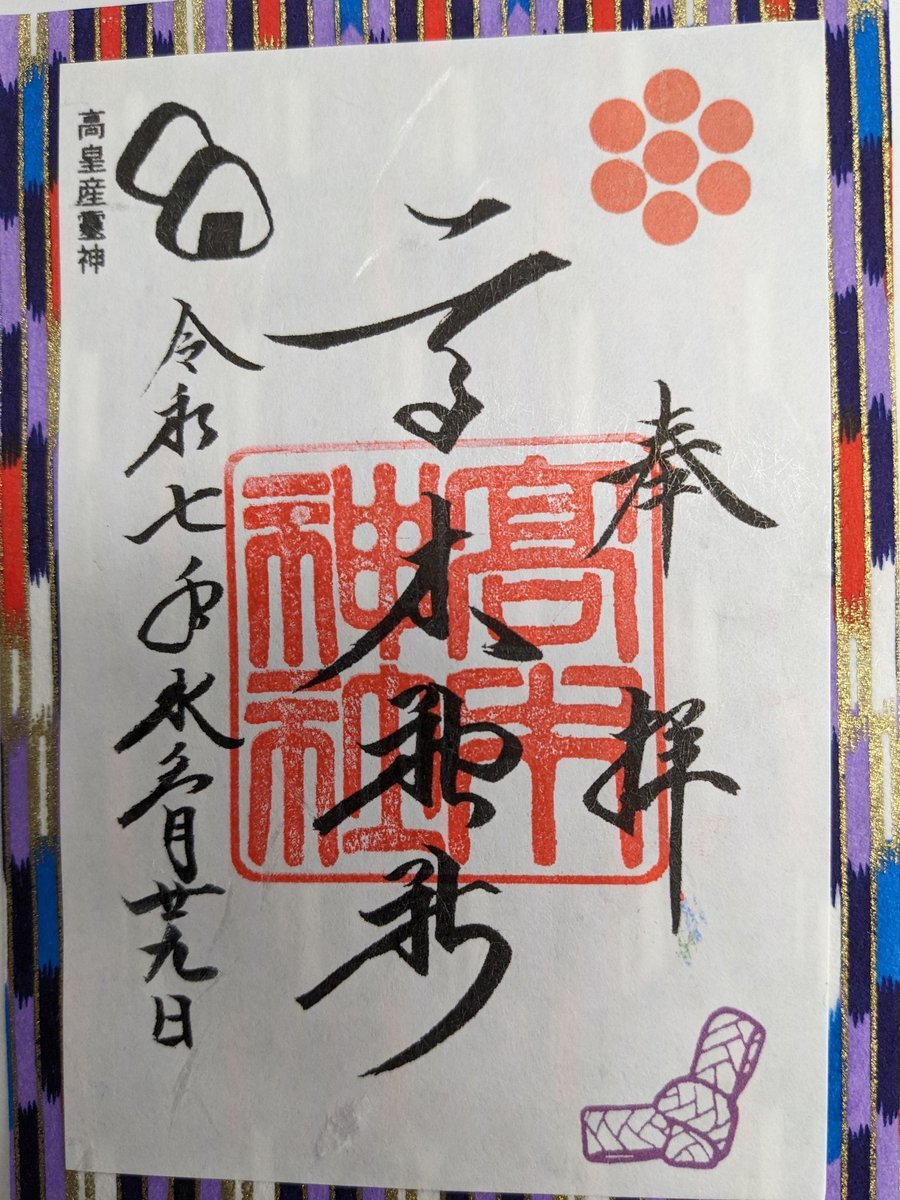 奉拝
高木神社
高木神社
令和七年水無月廿九日
高皇産霊神